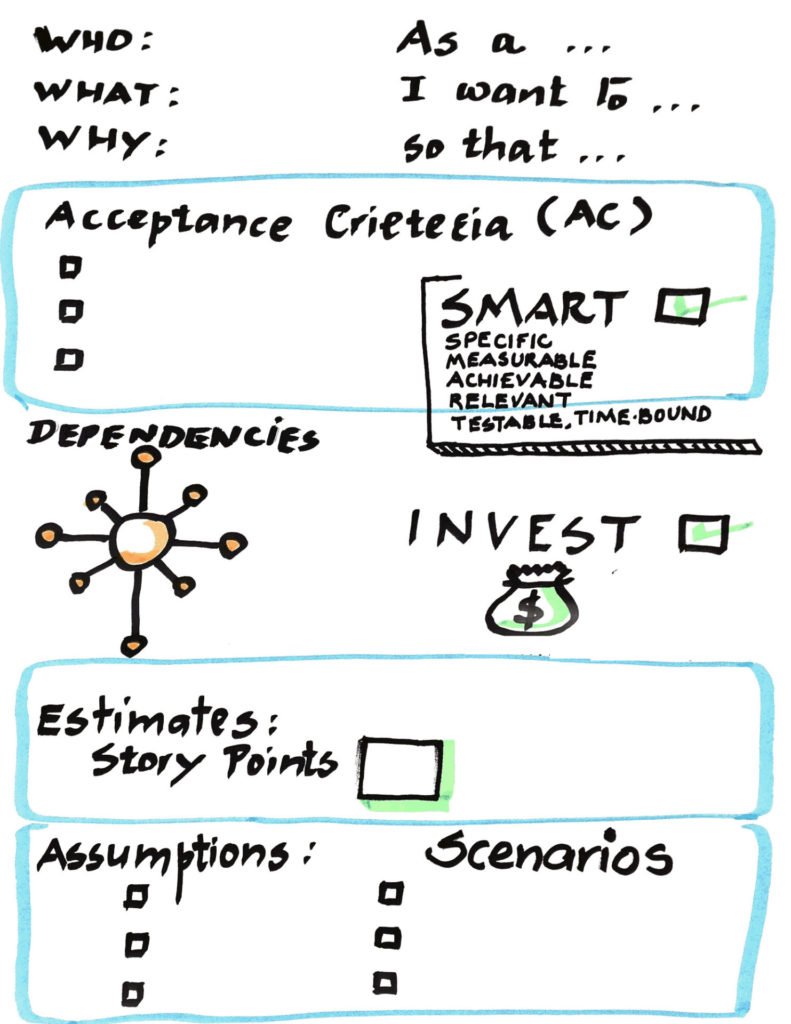 WHO: As a ...
WHAT: I want to ...
WHY: so that ...
Acceptance Crieteria (AC)
SMART
SPECIFIC
MEASURABLE
ACHIEVABLE
RELEVANT
TESTABLE, TIME-BOUND
DEPENDENCIES
INVEST
$
Estimates:
Story Points
Assumptions: Scenarios